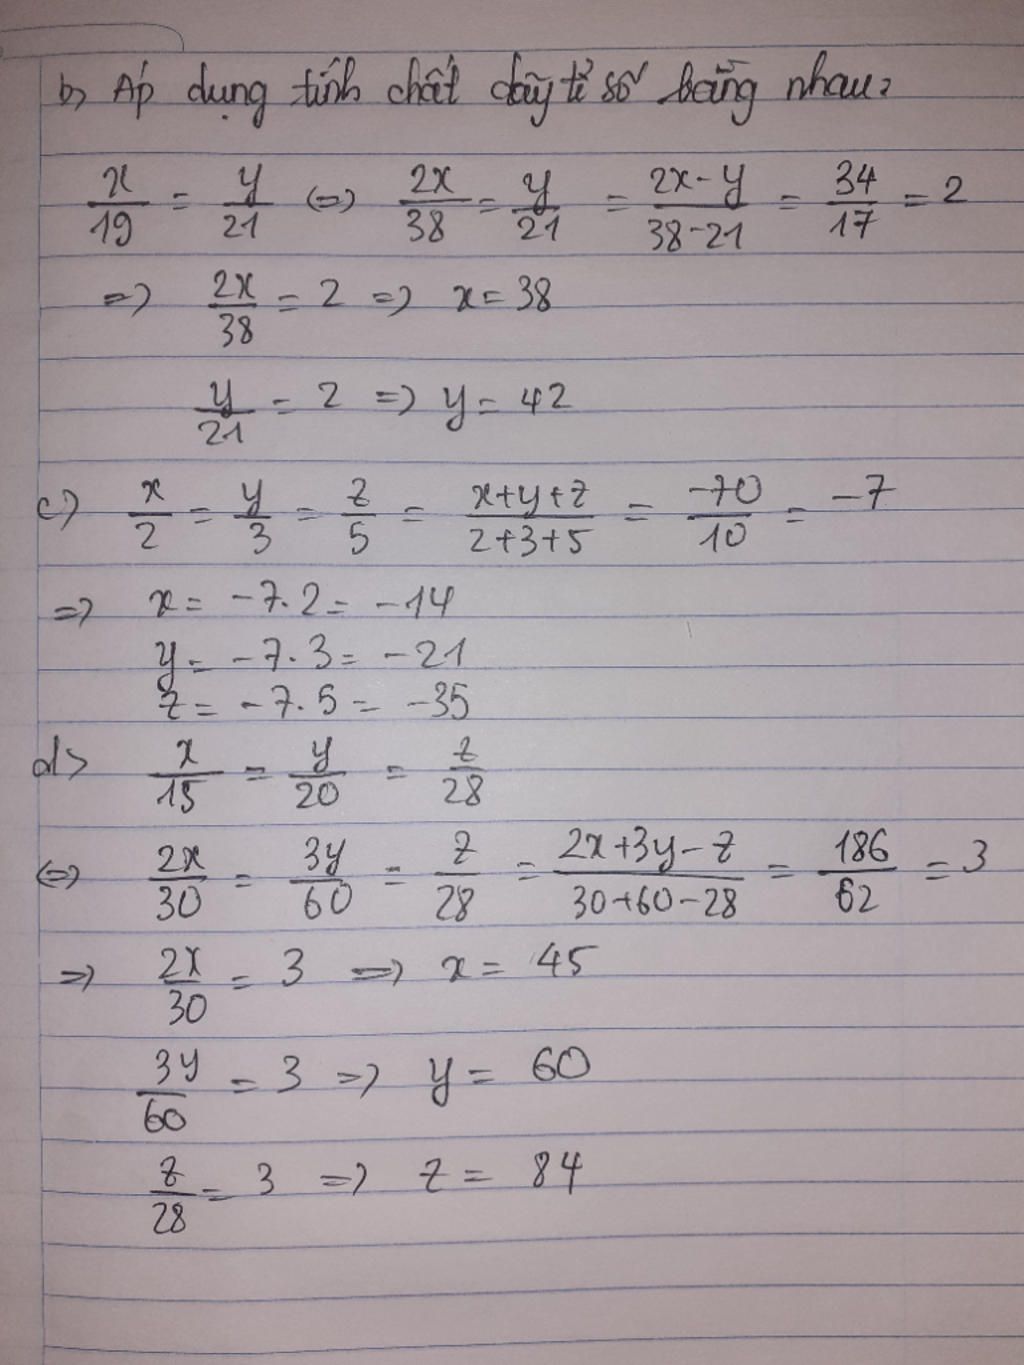 b) Áp dụng tính chất dãy tỉ số bằng nhau:
x/19 = y/21 (=) 2x/38 = y/21 = 2x-y/38-21 = 34/17 = 2
=) 2x/38 = 2 =) x = 38
y/21 = 2 =) y = 42
c) x/2 = y/3 = z/5 = x+y+z/2+3+5 = -70/10 = -7
=) x = -7.2 = -14
y = -7.3 = -21
z = -7.5 = -35
d) x/15 = y/20 = z/28
(=) 2x/30 = 3y/60 = z/28 = 2x+3y-z/30+60-28 = 186/62 = 3
=) 2x/30 = 3 =) x = 45
3y/60 = 3 =) y = 60
z/28 = 3 =) z = 84